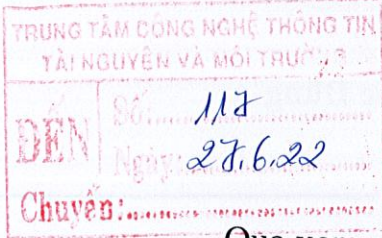 TRUNG TÂM CÔNG NGHỆ THÔNG TIN
TÀI NGUYÊN VÀ MÔI TRƯỜNG
ĐẾN
Số: 117
Ngày: 27.6.22
Chuyển: